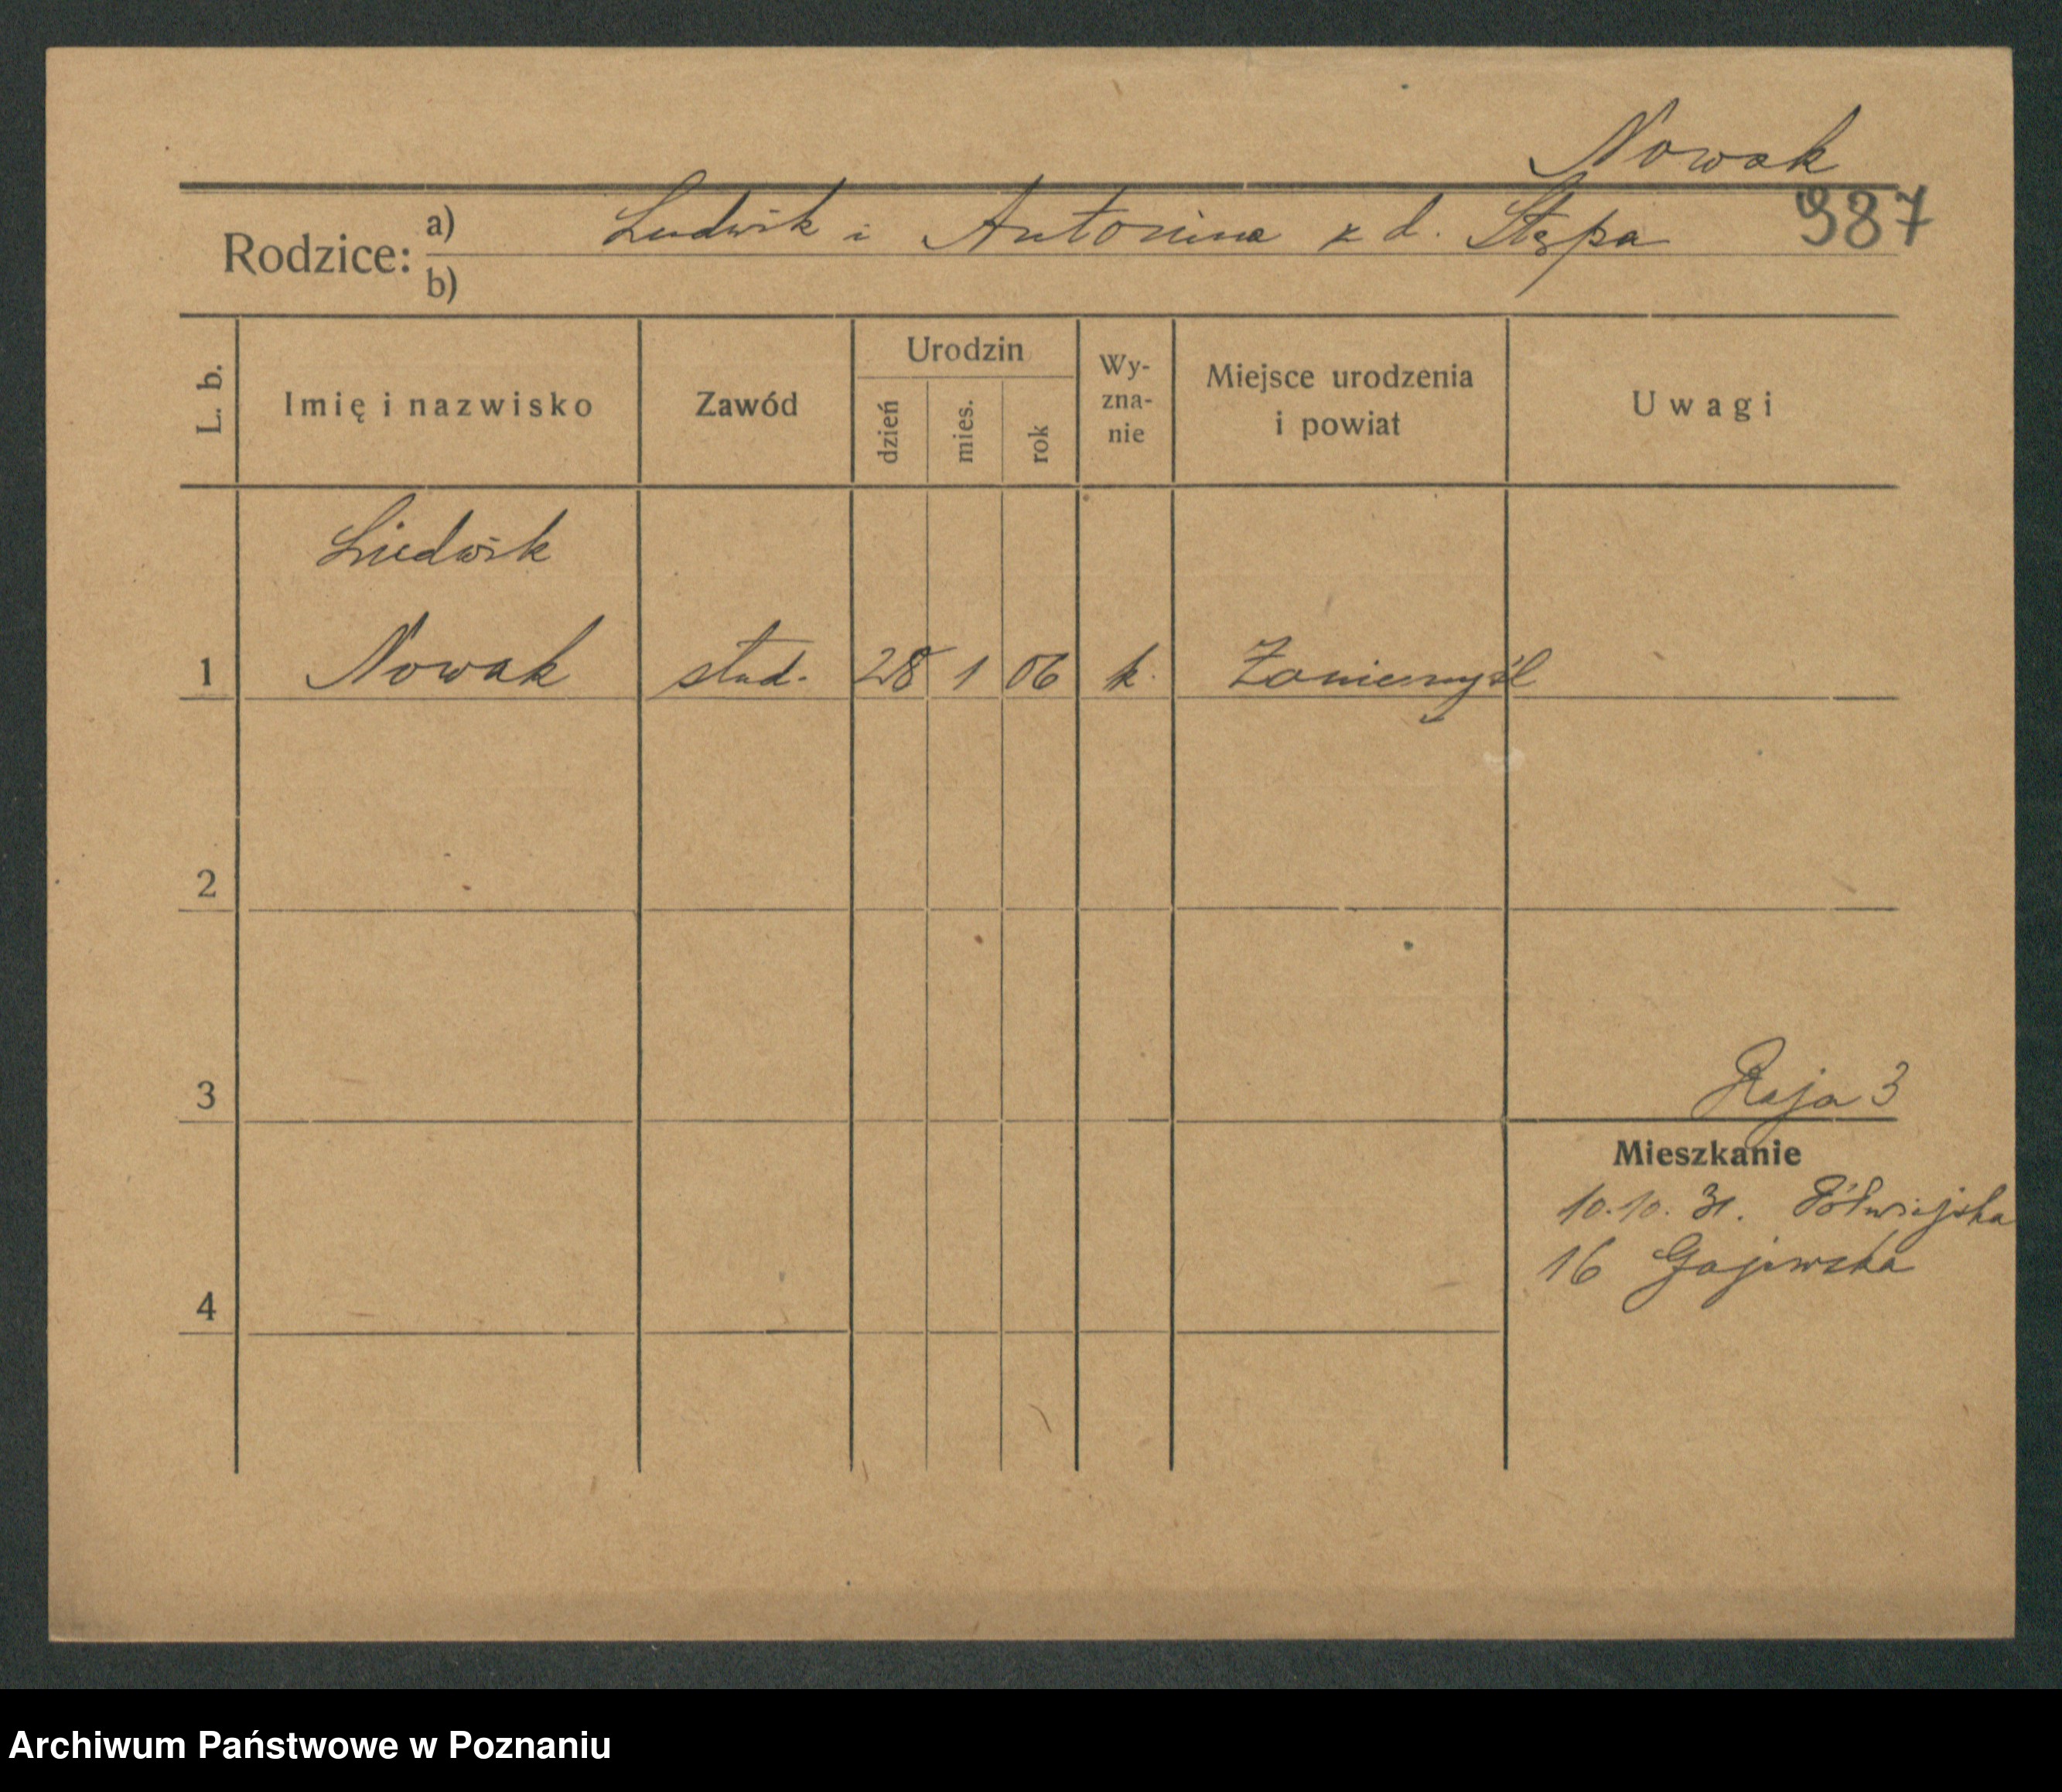 Nowak
987
Rodzice: a) Ludwik i Antonina z d. Stępa
b)
L. b.
Imię i nazwisko
Zawód
Urodzin
dzień
mies.
rok
Wy-
zna-
nie
Miejsce urodzenia
i powiat
Uwagi
Ludwik
1 Nowak stud. 28 1 06 k. Zaniemyśl
2
3
Raja 3
Mieszkanie
10.10.31. Półwiejska
16 Gajewska
4
Archiwum Państwowe w Poznaniu